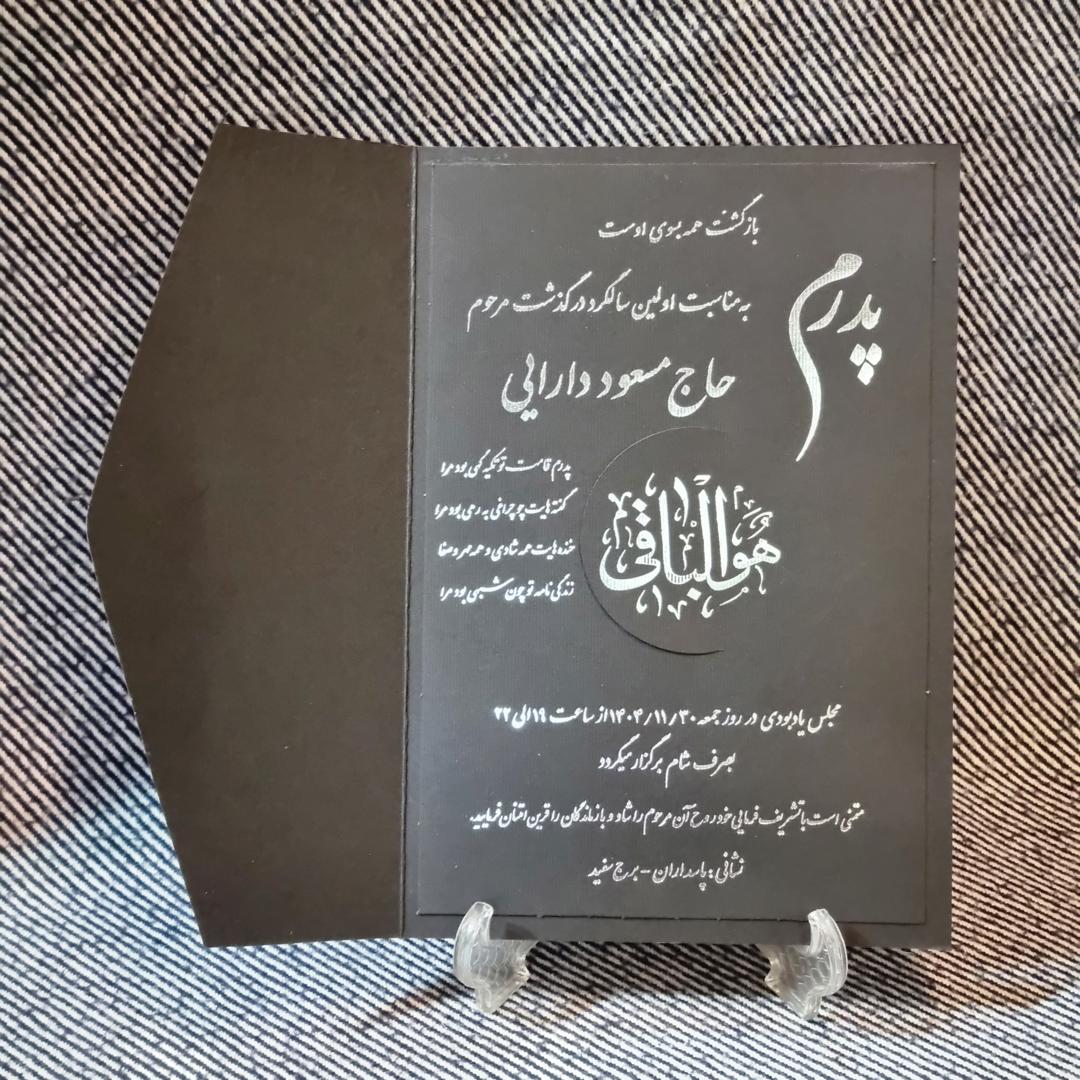 بازگشت همه بسوی اوست
پدرم
به مناسبت اولین سالگرد درگذشت مرحوم
حاج مسعود دارایی
پدرم قامت تو تکیه گهی بود مرا
گفته هایت چو چراغی به رهی بود مرا
خنده هایت همه شادی و همه مهر و صفا
زندگی نامه تو چون شبهی بود مرا
هو الباقی
مجلس یادبودی در روز جمعه ۱۴۰۴/۱۱/۳۰ از ساعت ۱۹ الی ۲۲
بصرف شام برگزار میگردد
متمنی است با تشریف فرمایی خود روح آن مرحوم را شاد و بازماندگان را قرین امتنان فرمایید.
نشانی: پاسداران - برج سفید